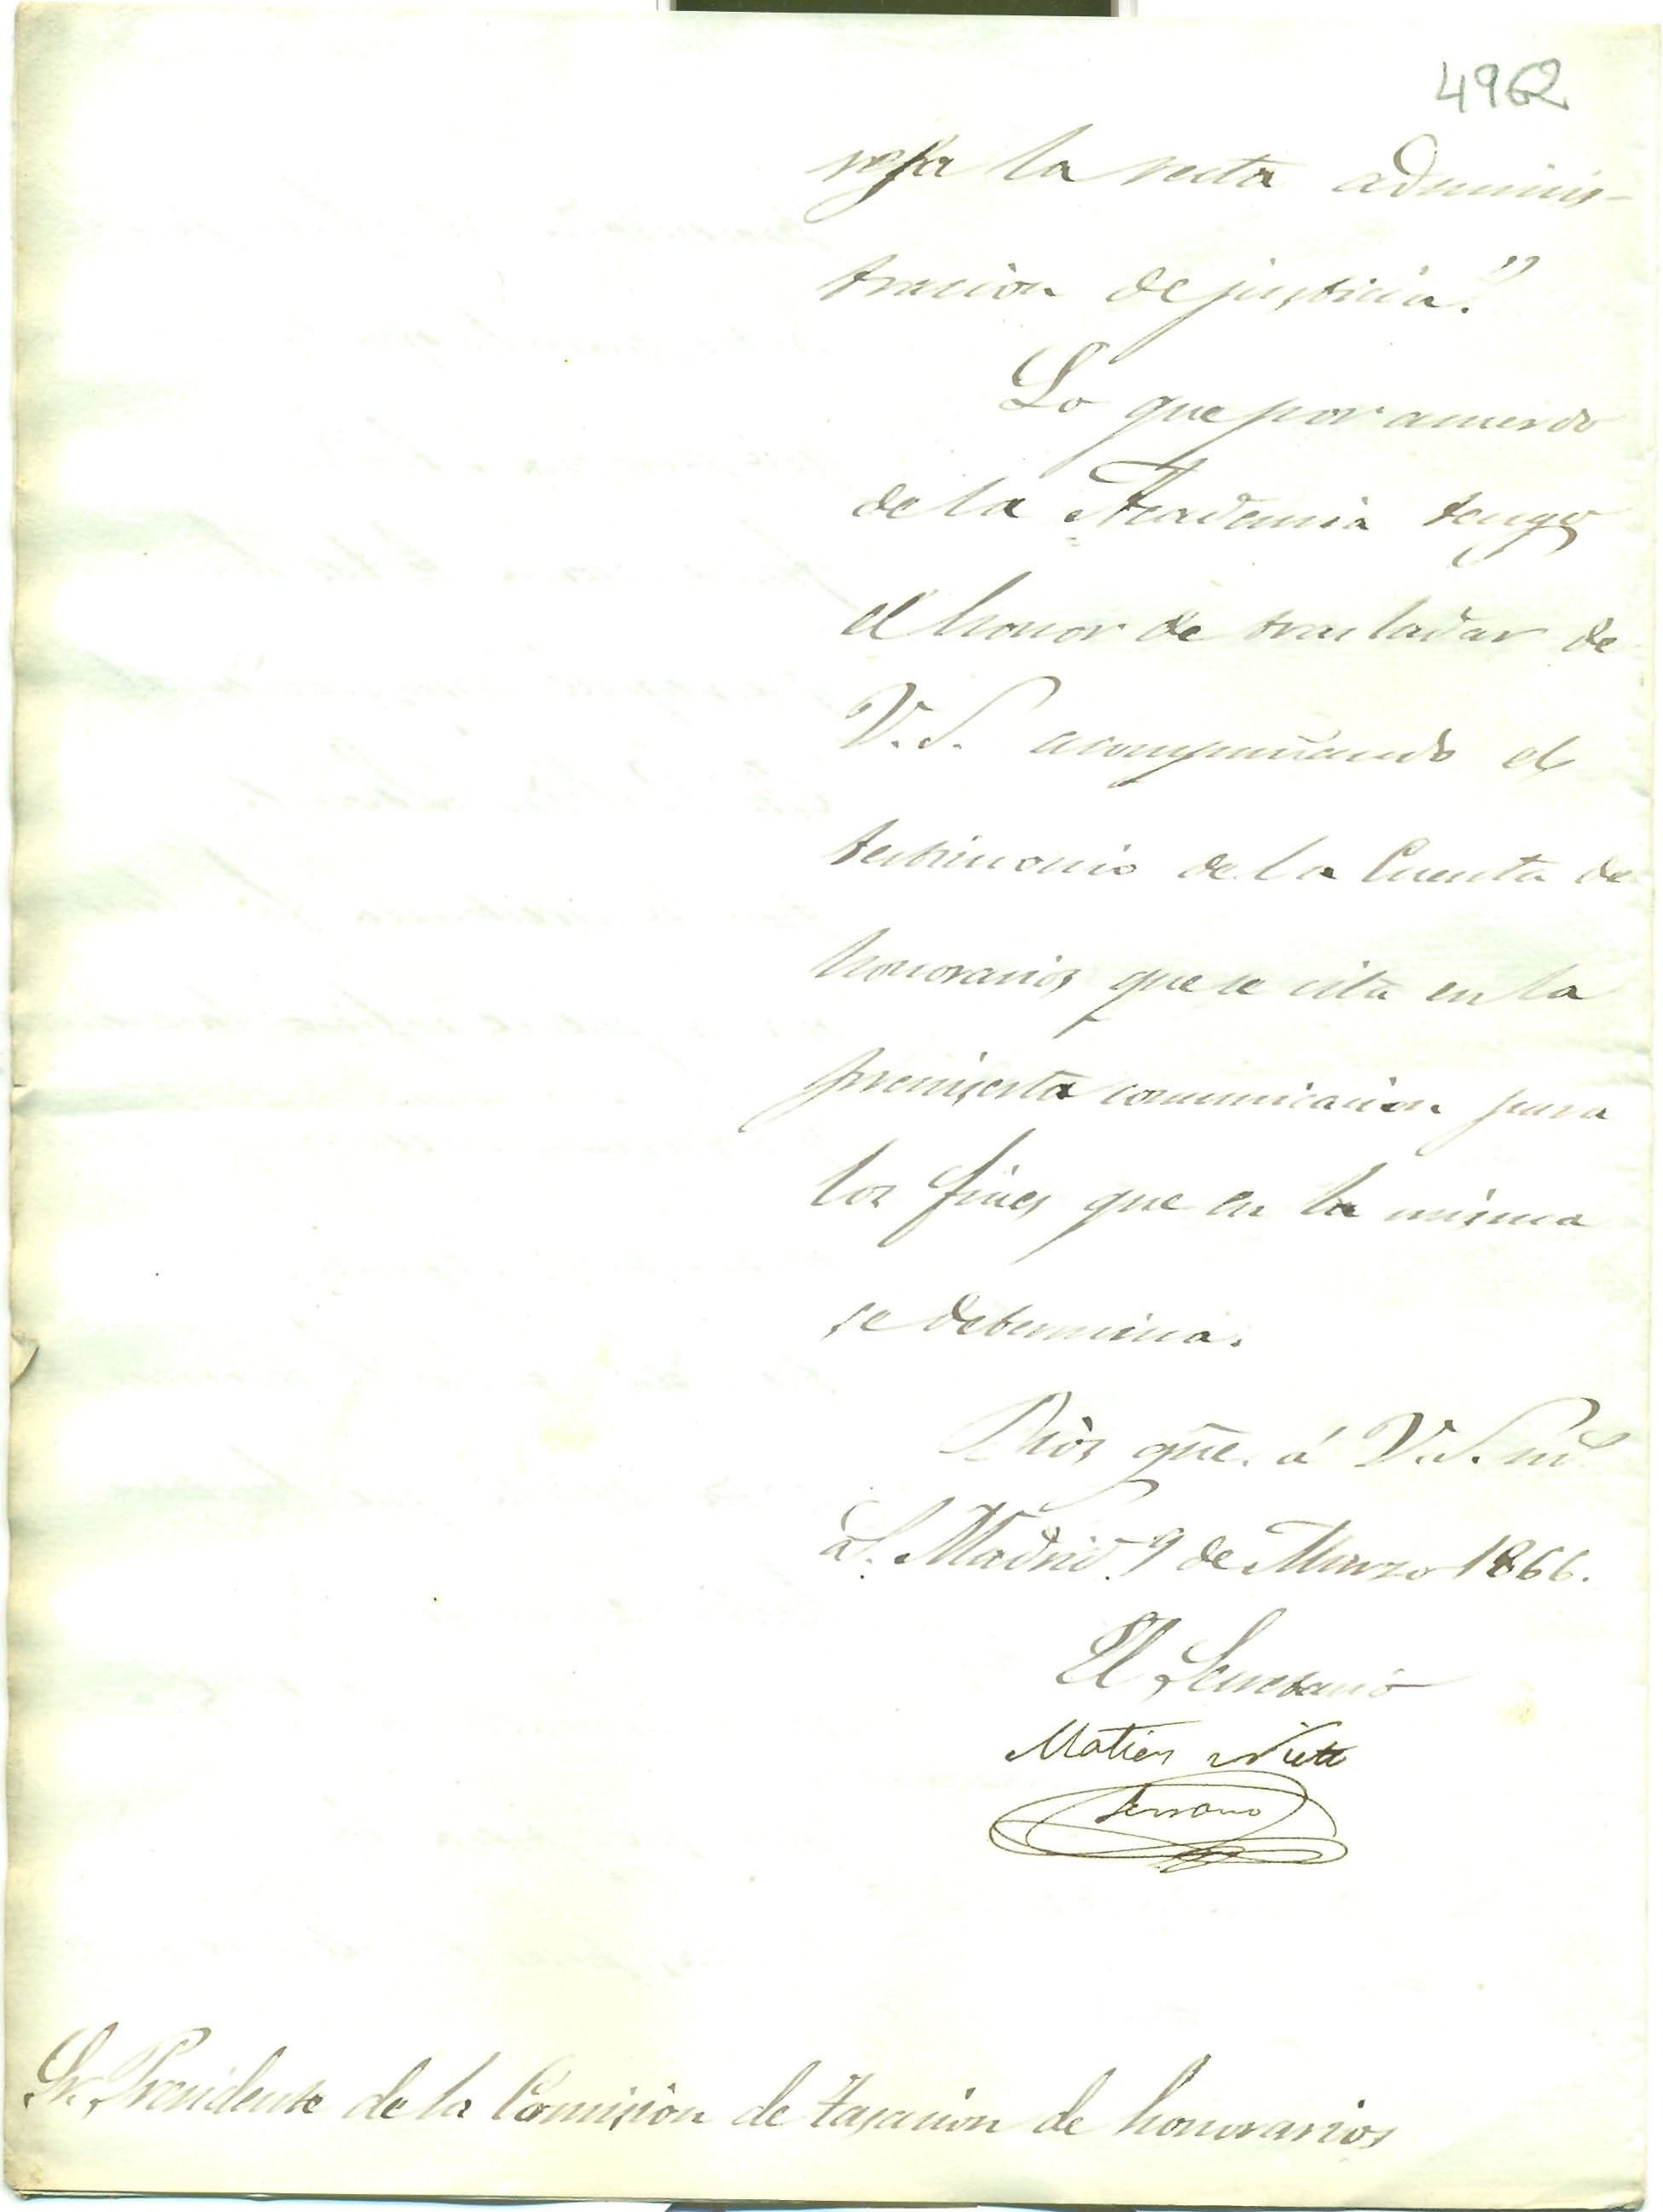 4962
la recta adminis-
tracion de justicia."
Lo que por acuerdo
de la Academia tengo
el honor de trasladar de
V. S. acompañando el
testimonio de la Cuenta de
honorarios que se cita en la
preinserta comunicacion para
los fines que en la misma
se determina.
Dios gue. á V. S. m.s
a.s. Madrid 9 de Marzo 1866.
El Secretario
Matias Nieto
Serrano
Sr. Presidente de la Comision de tasacion de honorarios